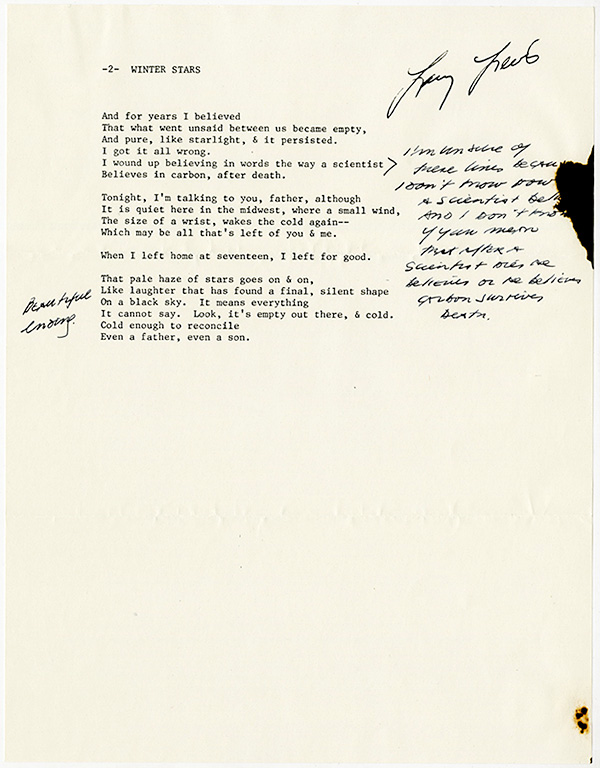 -2- WINTER STARS
Larry Levis
And for years I believed
That what went unsaid between us became empty,
And pure, like starlight, & it persisted.
I got it all wrong.
I wound up believing in words the way a scientist
Believes in carbon, after death.
I'm unsure of
these lines because
I don't know how
a scientist
And I don't
if you mean
that after a
scientist dies he
believes or he believes
carbon survives
death.
Tonight, I'm talking to you, father, although
It is quiet here in the midwest, where a small wind,
The size of a wrist, wakes the cold again--
Which may be all that's left of you & me.
When I left home at seventeen, I left for good.
That pale haze of stars goes on & on,
Like laughter that has found a final, silent shape
On a black sky. It means everything
It cannot say. Look, it's empty out there, & cold.
Cold enough to reconcile
Even a father, even a son.
Beautiful
ending.